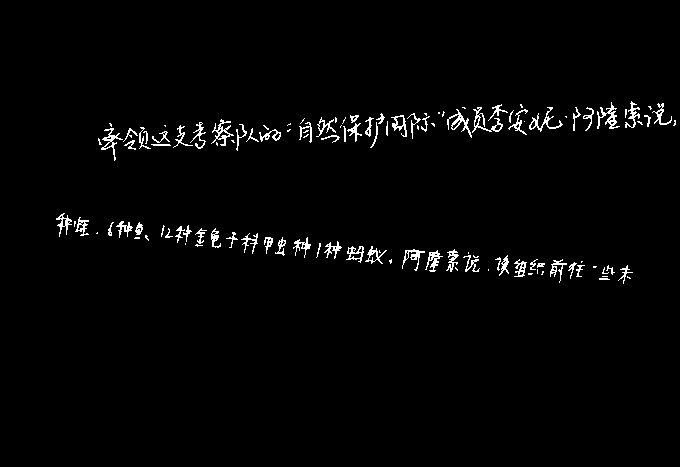 牵领这支考察队的“自然保护国际”成员李安妮·阿隆索说,
种蛙、6种鱼、12种金龟子科甲虫种1种蚂蚁。阿隆索说,该组织前往一些未